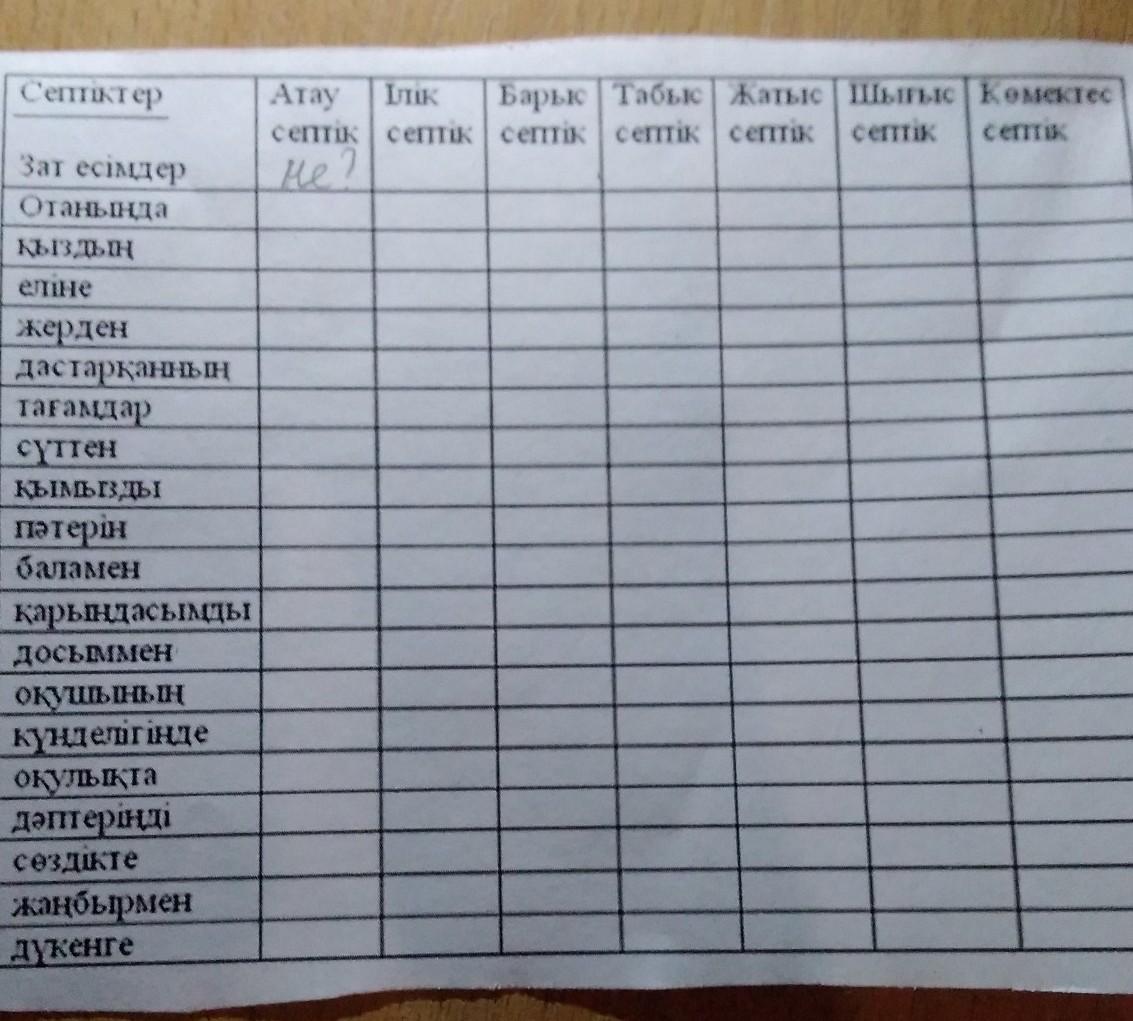 Септіктер
Атау септік
Ілік септік
Барыс септік
Табыс септік
Жатыс септік
Шығыс септік
Көмектес септік
Зат есімдер
не?
Отанында
қыздың
еліне
жерден
дастарқанның
тағамдар
сүттен
қымызды
пәтерін
баламен
қарындасымды
досыммен
оқушының
күнделігінде
оқулықта
дәптеріңді
сөздікте
жаңбырмен
дүкенге